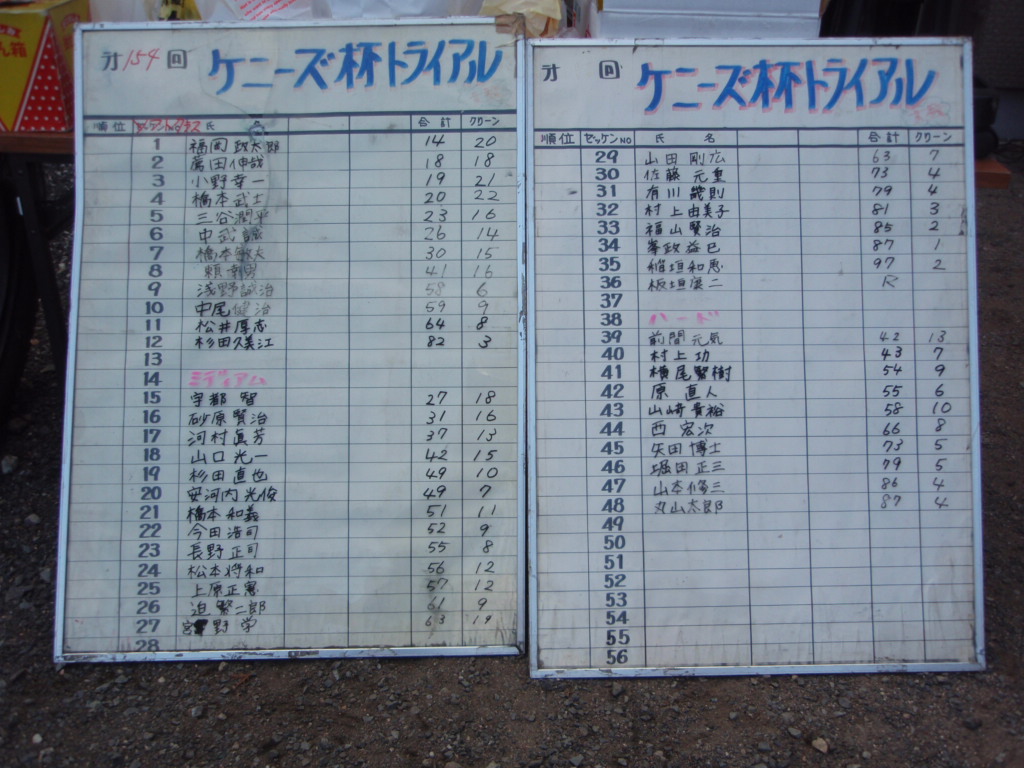 才154回 ケニーズ杯トライアル
順位 氏 名 合計 クリーン
1 福岡政太郎 14 20
2 薦田伸哉 18 18
3 小野幸一 19 21
4 橋本武士 20 22
5 三谷潤平 23 16
6 中武誠 26 14
7 橋本敏大 30 15
8 頼 41 16
9 浅野誠治 58 6
10 中尾健治 59 9
11 松井厚志 64 8
12 杉田久美江 82 3
13
14 ミディアム
15 宇都 智 27 18
16 砂原賢治 31 16
17 河村眞芳 37 13
18 山口光一 42 15
19 杉田直也 49 10
20 安河内光俊 49 7
21 橋本和義 51 11
22 今田浩司 52 9
23 長野正司 55 8
24 松本将和 56 12
25 上原正憲 57 12
26 迫 繁二郎 61 9
27 野 栄 63 19
28
才 回 ケニーズ杯トライアル
順位 ゼッケンNO 氏 名 合計 クリーン
29 山田剛広 63 7
30 佐藤元重 73 4
31 有川義則 79 4
32 村上由美子 81 3
33 福山賢治 85 2
34 峯政益巳 87 1
35 稲垣和恵 97 2
36 板垣康二 R
37
38 ハード
39 前間元気 42 13
40 村上功 43 7
41 横尾賢樹 54 9
42 原 直人 55 6
43 山崎貴裕 58 10
44 西 宏次 66 8
45 矢田博士 73 5
46 堀田正三 79 5
47 山本修三 86 4
48 丸山太郎 87 4
49
50
51
52
53
54
55
56